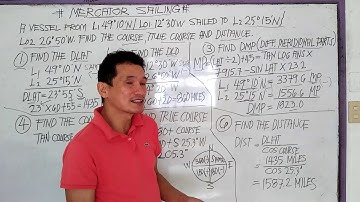 # MERCATOR SAILING #
A VESSEL FROM L1 49°10'N / LO1 12°30'W SAILED TO L2 25°15'N /
LO2 26°50'W. FIND THE COURSE, TRUE COURSE AND DISTANCE.
① FIND THE DLAT
L1 49°10'N
L2 25°15'N
DLAT = 23°55'S
23 x 60 + 55 = 1435
FIND THE DLO
12°30'W
26°50'W
③ FIND DMP (DIFF. MERIDIONAL PARTS)
MP = (LAT ÷ 2) + 45 = TAN LOG ANS X
7915.7 - SIN LAT X 23.2
L1 49°10'N = 3379.6 MP
L2 25°15'N = 1556.6 MP
DMP = 1823.0
④ FIND THE
TAN COURSE
TRUE COURSE
180
N
W
E
S
⑥ FIND THE DISTANCE
DIST = DLAT
COS COURSE
= 1435 MILES
COS 25.3°
= 1587.2 MILES